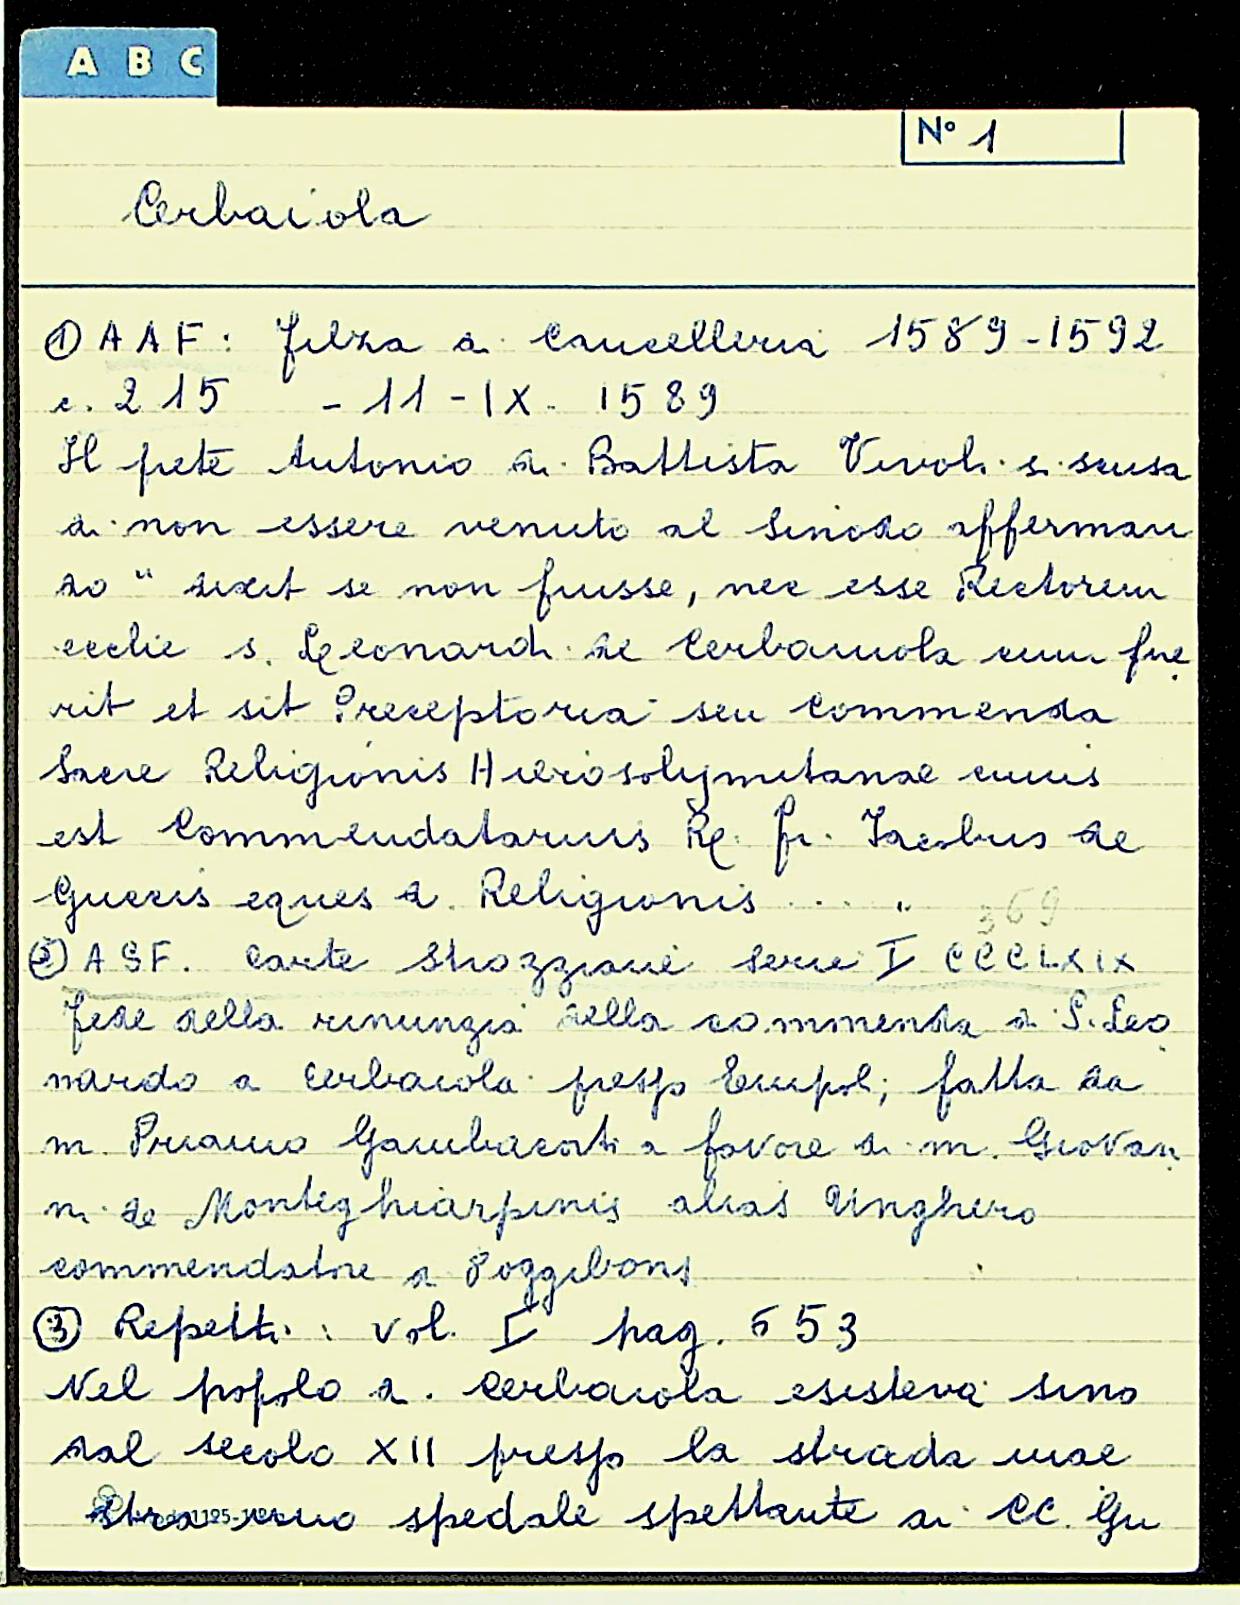 A B C
N° 1
Cerbaiola
① A A F: filza di Cancelleria 1589-1592
c. 215 - 11 - IX - 1589
Il prete Antonio di Battista Vivoli si scusa
di non essere venuto al Sinodo afferman
do "dixit se non fuisse, nec esse Rectorem
ecclie s. Leonardi de Cerbaiuola cum fue
rit et sit Preceptoria seu Commenda
Sacre Religionis Hierosolymitanae cuius
est Commendatarius R. fr. Jacobus de
eques d. Religionis ... "
369
② ASF. Carte Strozziane serie I CCCLXIX
Fede della rinunzia della commenda di S. Leo
nardo a Cerbaiola presso Empoli; fatta da
m. Priamo Gambacorti a favore di m. Giovan
ni de Monteghiarpinis alias Unghero
commendatore di Poggibonsi
③ Repetti: vol. I pag. 653
Nel popolo di Cerbaiola esisteva sino
dal secolo XII presso la strada mae
stra uno spedale spettante ai CC. Gu